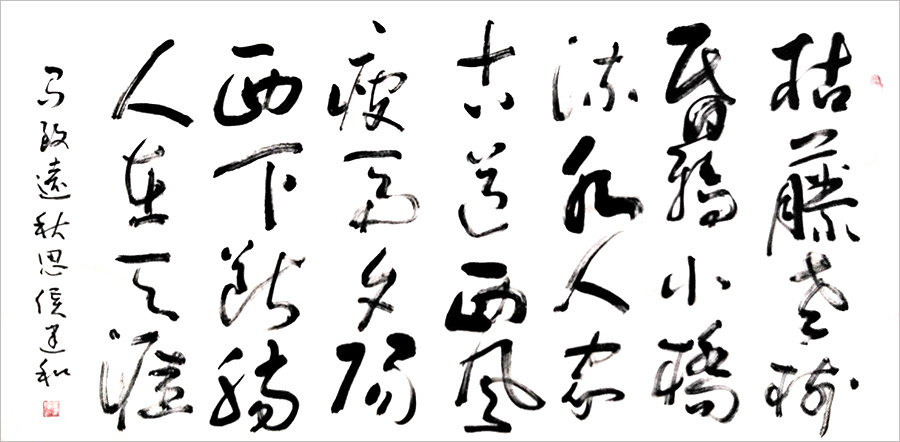 枯藤老树
昏鸦小橋
流水人家
古道西风
瘦马夕陽
西下断腸
人在天涯
马致遠秋思侯建和